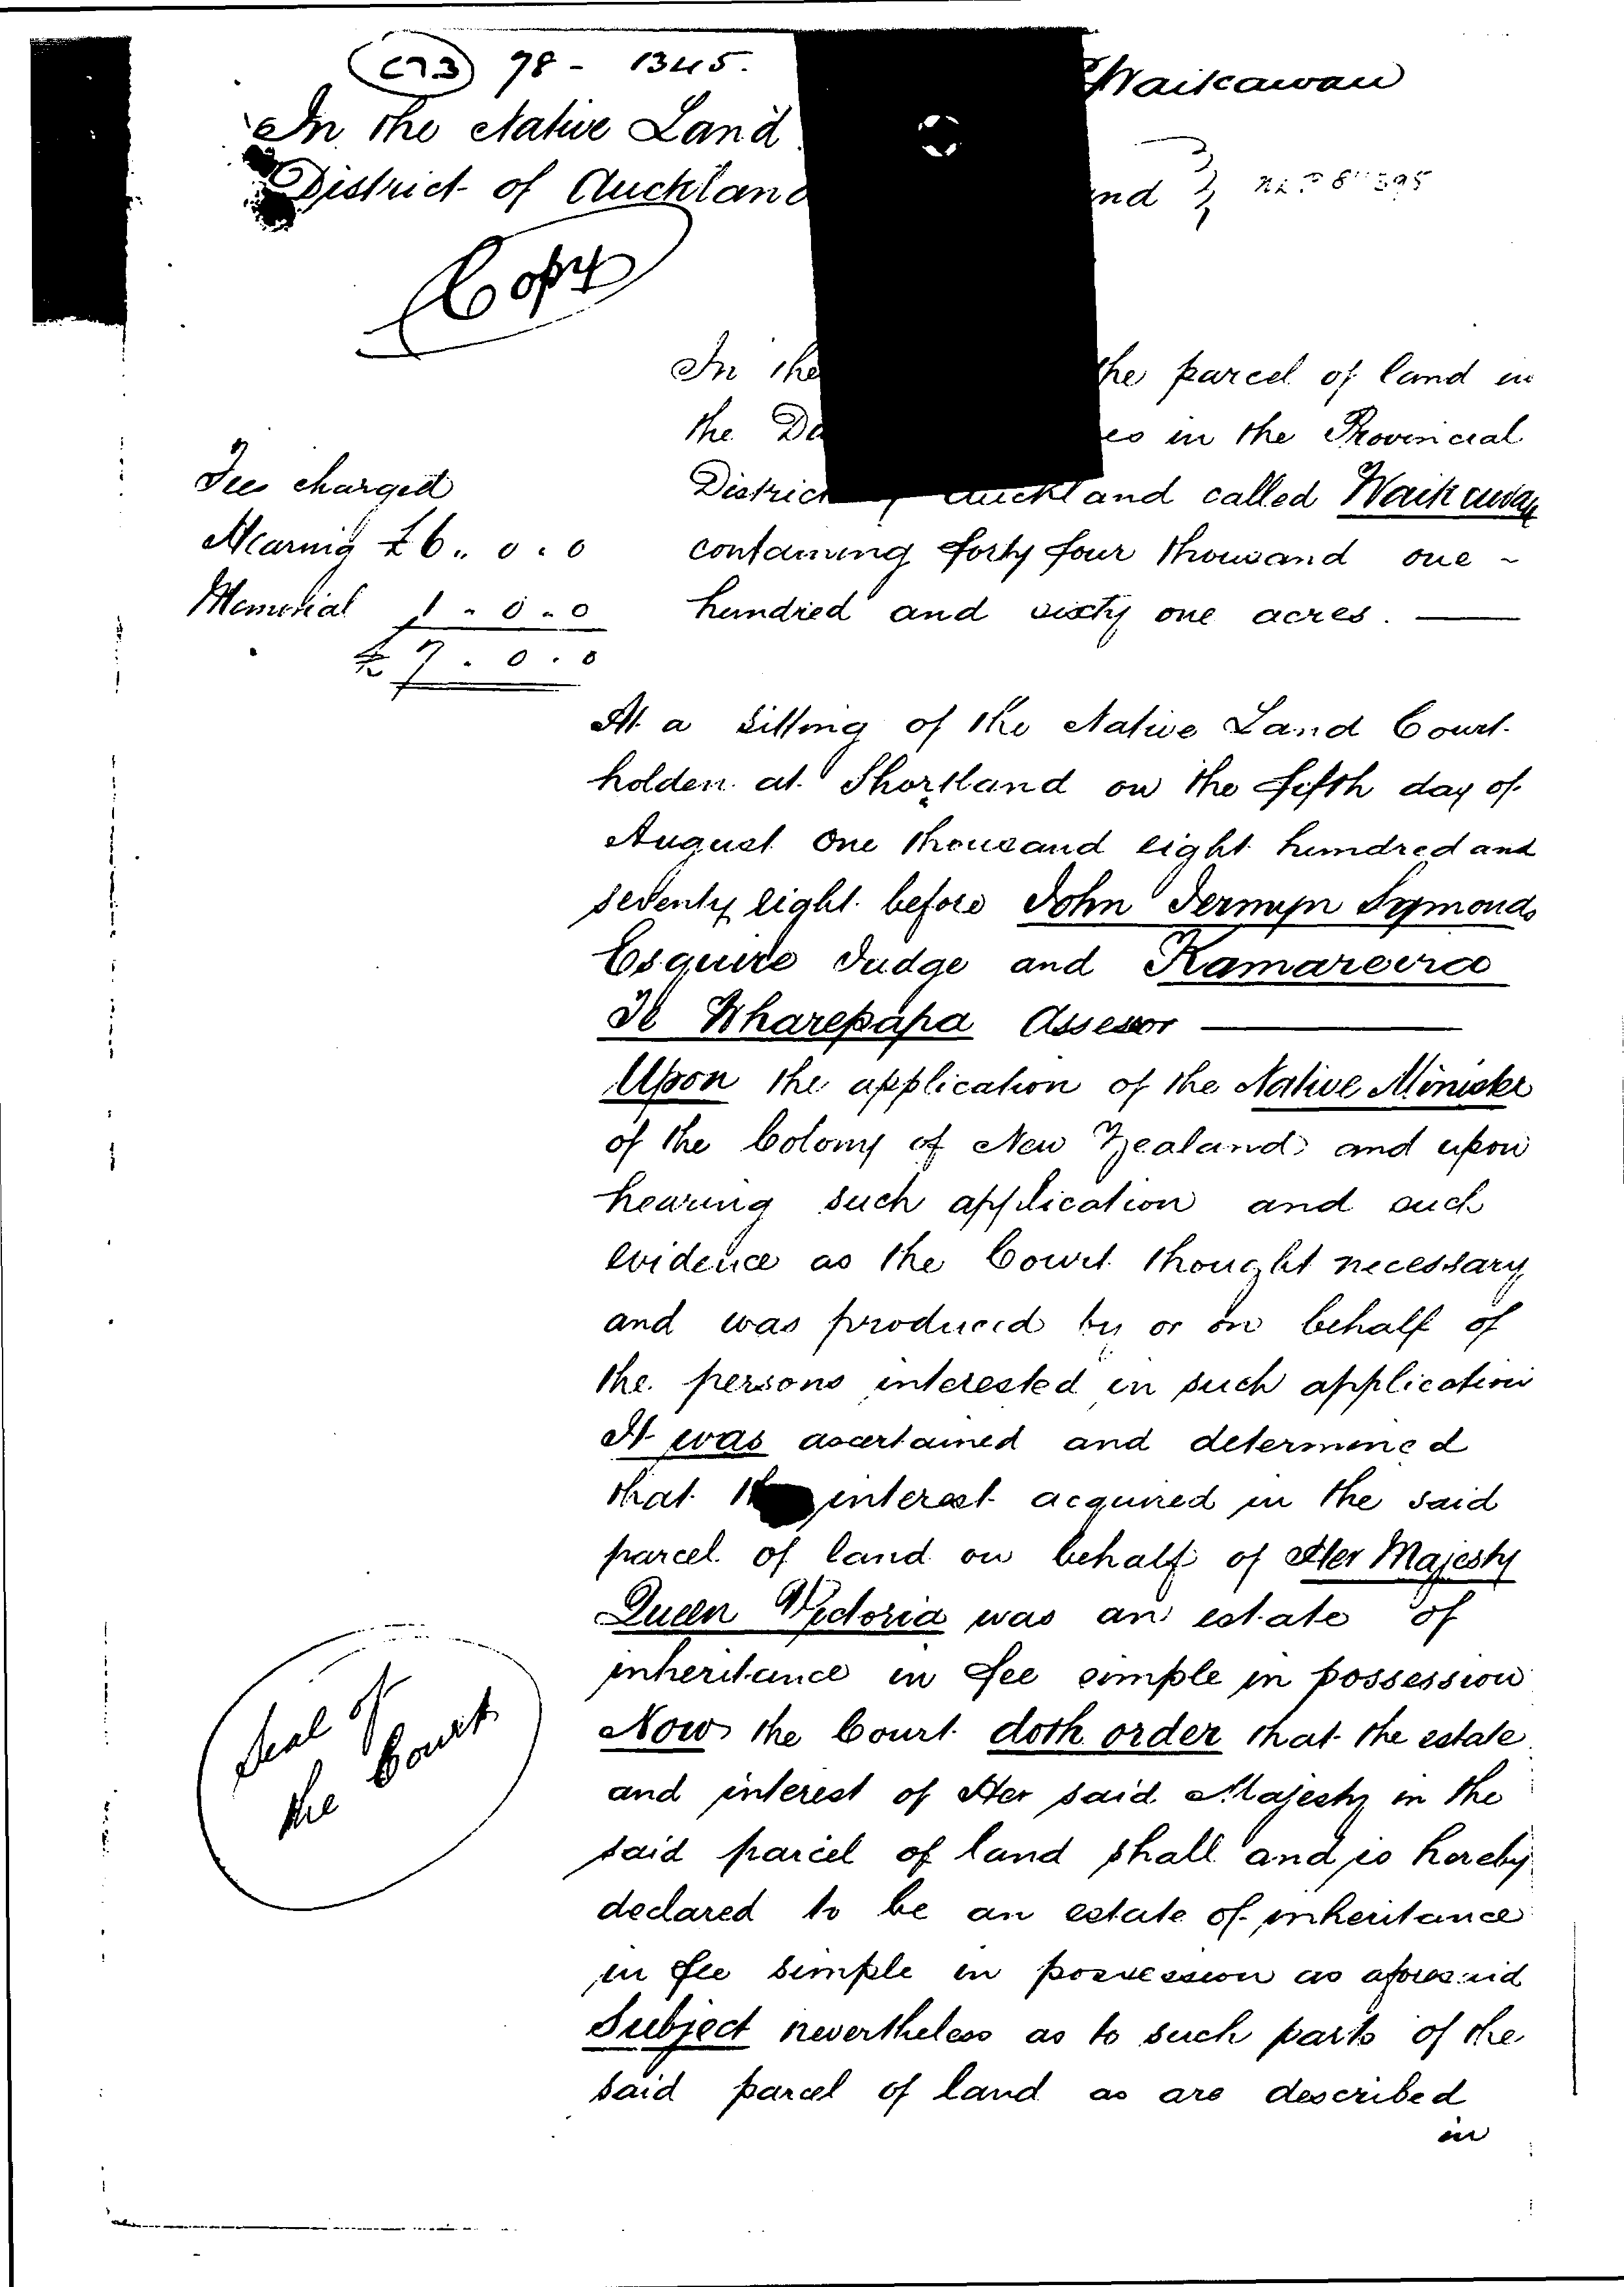 C73 78 - 1345.
Waikawau
In the Native Land
District of Auckland
and
Copy
In the the parcel of land in
the es in the Provincial
District Auckland called Waikawau
containing forty four thousand one -
hundred and sixty one acres.
Fees charged
Hearing £6 .. 0 . 0
Memorial 1 - 0 . 0
£ 7 . 0 . 0
At a sitting of the Native Land Court
holden at Shortland on the fifth day of
August one thousand eight hundred and
seventy eight before John Jermyn Symonds
Esquire Judge and Kamareira
Te Wharepapa Assessor
Upon the application of the Native Minister
of the Colony of New Zealand and upon
hearing such application and such
evidence as the Court thought necessary
and was produced by or on behalf of
the persons interested in such application
It was ascertained and determined
that interest acquired in the said
parcel of land on behalf of Her Majesty
Queen Victoria was an estate of
inheritance in fee simple in possession
Now the Court doth order that the estate
and interest of Her said Majesty in the
said parcel of land shall and is hereby
declared to be an estate of inheritance
in fee simple in possession as aforesaid
Subject nevertheless as to such parts of the
said parcel of land as are described
in
Seal of
the Court